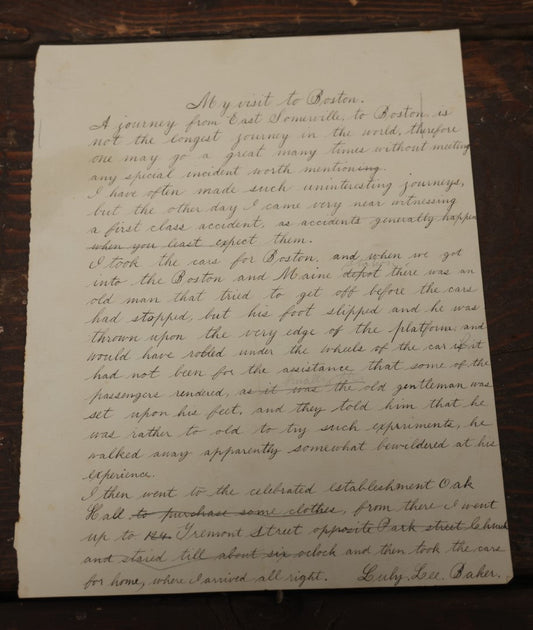 My visit to Boston.
A journey from East Somerville, to Boston is
not the longest journey in the world, therefore
one may go a great many times without meeting
any special incident worth mentioning.
I have often made such uninteresting journeys,
but the other day I came very near witnessing
a first class accident, as accidents generally happen
when you least expect them.
I took the cars for Boston, and when we got
into the Boston and Maine depot there was an
old man that tried to get off before the cars
had stopped, but his foot slipped and he was
thrown upon the very edge of the platform, and
would have rolled under the wheels of the car if it
had not been for the assistance that some of the
passengers rendered, as it was the old gentleman was
set upon his feet, and they told him that he
was rather to old to try such expriments, he
walked away apparently somewhat bewildered at his
experience.
I then went to the celebrated establishment Oak
Hall to purchase some clothes, from there I went
up to Tremont Street opposite Park street Church
and staied till about six oclock and then took the cars
for home, where I arrived all right. Luby. Lee. Baker.